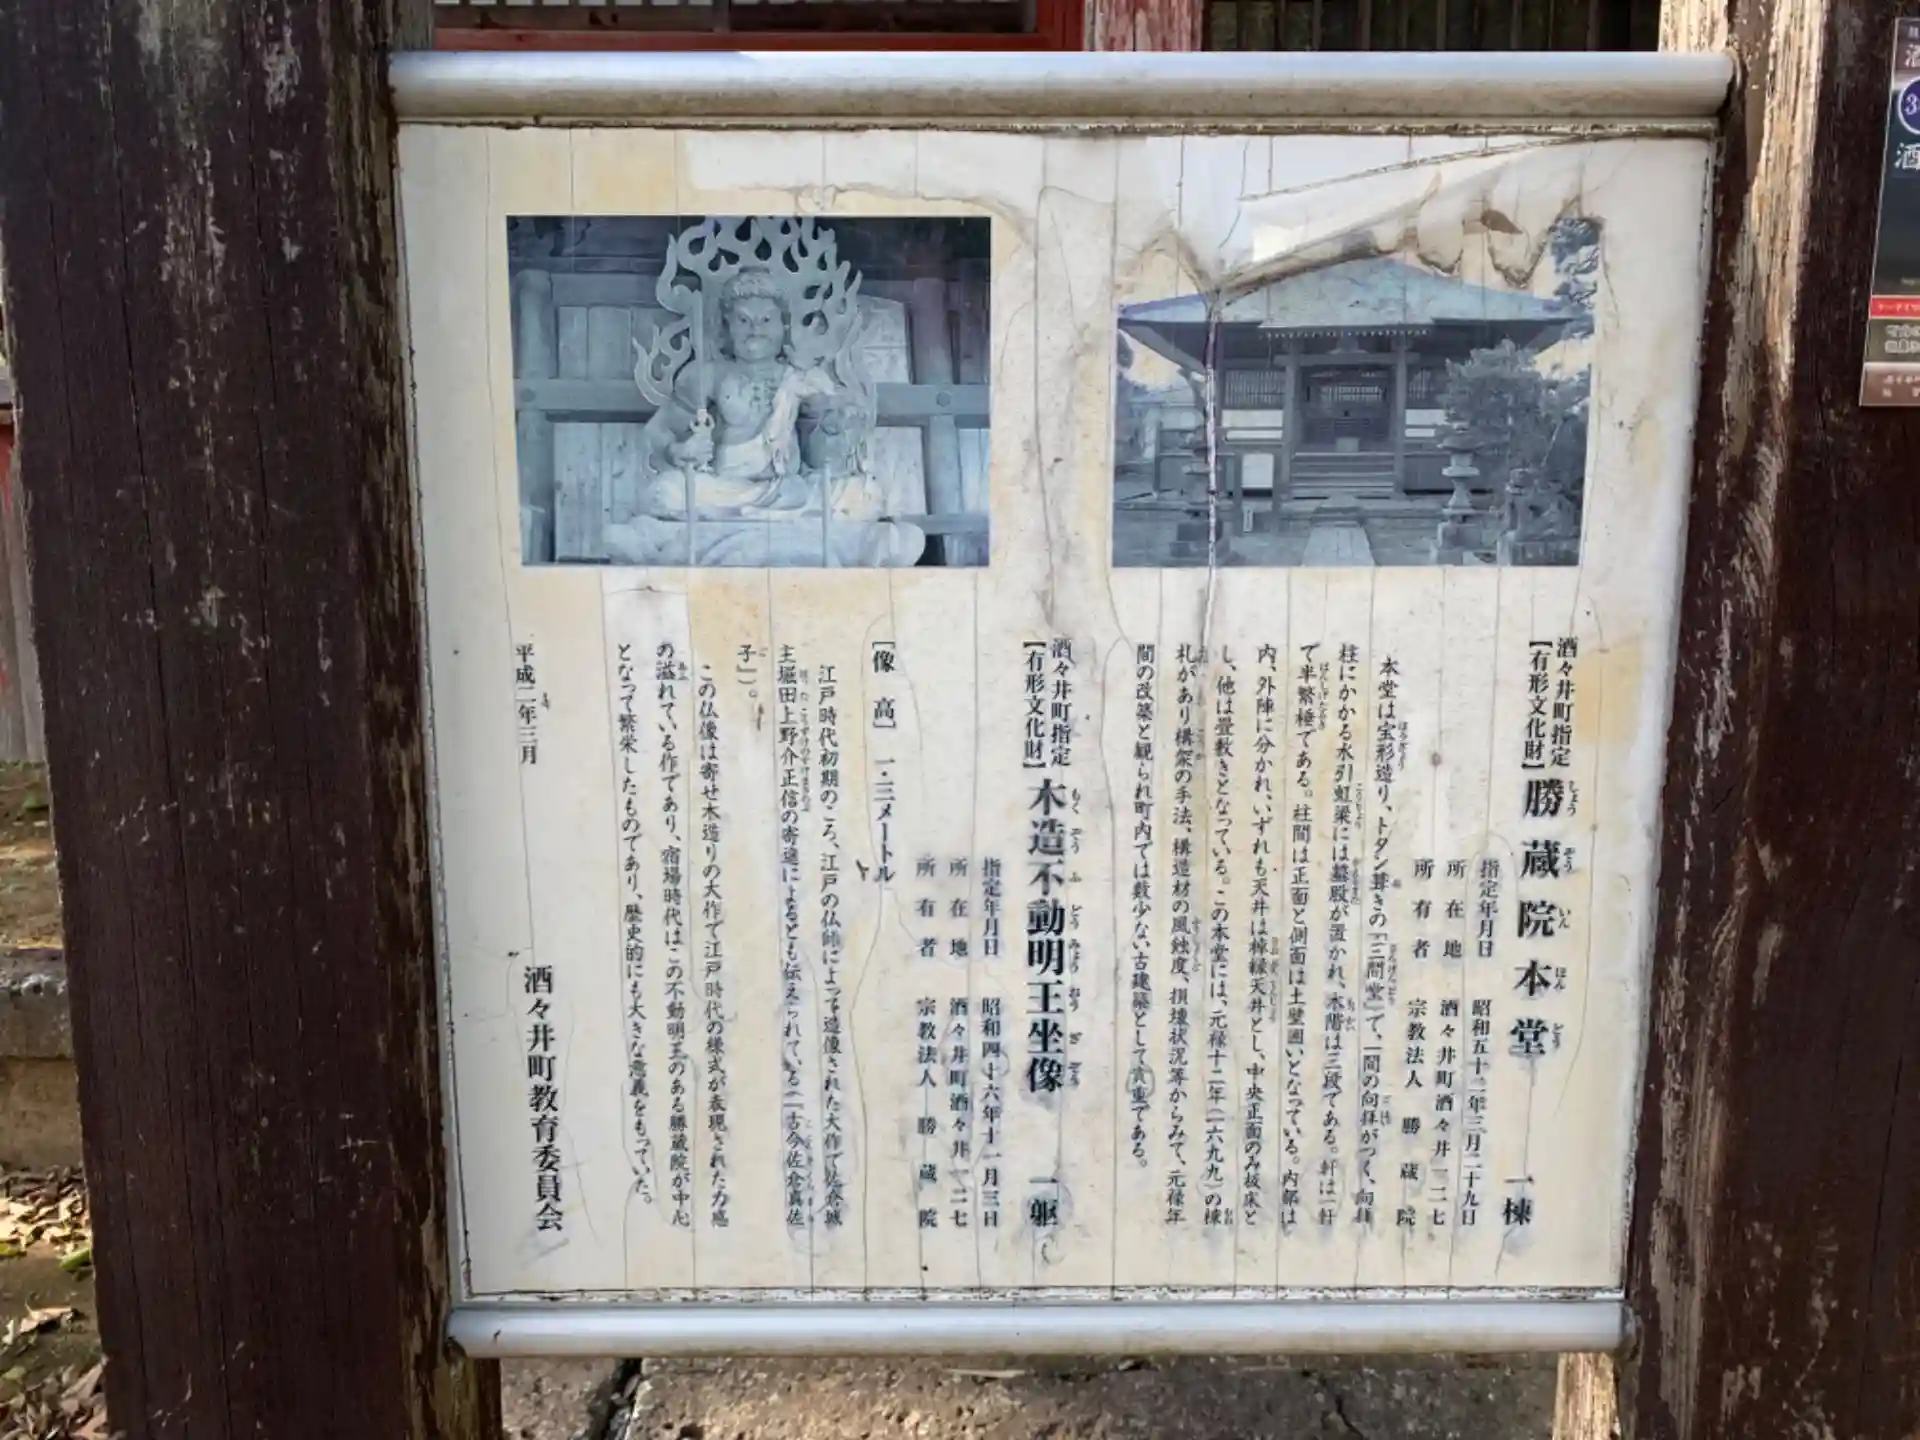 酒々井町指定
【有形文化財】
勝蔵院本堂
しょうぞういんほんどう
一棟
指定年月日 昭和五十二年三月二十九日
所在地 酒々井町酒々井一二七
所有者 宗教法人 勝蔵院
本堂は宝形造り、トタン葺きの「三間堂」で、一間の向拝がつく、向拝
柱にかかる水引虹梁には蟇股が置かれ、木階は三段である。軒は一軒
で半繁棰である。柱間は正面と側面は土壁囲いとなっている。内部は
内、外陣に分かれ、いずれも天井は棹縁天井とし、中央正面のみ板床と
し、他は畳敷きとなっている。この本堂には、元禄十二年(一六九九)の棟
札があり構架の手法、構造材の風蝕度、損壊状況等からみて、元禄年
間の改築と観られ町内では数少ない古建築として貴重である。
酒々井町指定
【有形文化財】
木造不動明王坐像
もくぞうふどうみょうおうざぞう
一躯
指定年月日 昭和四十六年十一月三日
所在地 酒々井町酒々井一二七
所有者 宗教法人 勝蔵院
[像 高] 一・三メートル
江戸時代初期のころ、江戸の仏師によって造像された大作で佐倉城
主堀田上野介正信の寄進によるとも伝えられている(「古今佐倉真佐
子」)。
この仏像は寄せ木造りの大作で江戸時代の様式が表現された力感
の溢れている作であり、宿場時代はこの不動明王のある勝蔵院が中心
となって繁栄したものであり、歴史的にも大きな意義をもっていた。
平成二年三月
酒々井町教育委員会